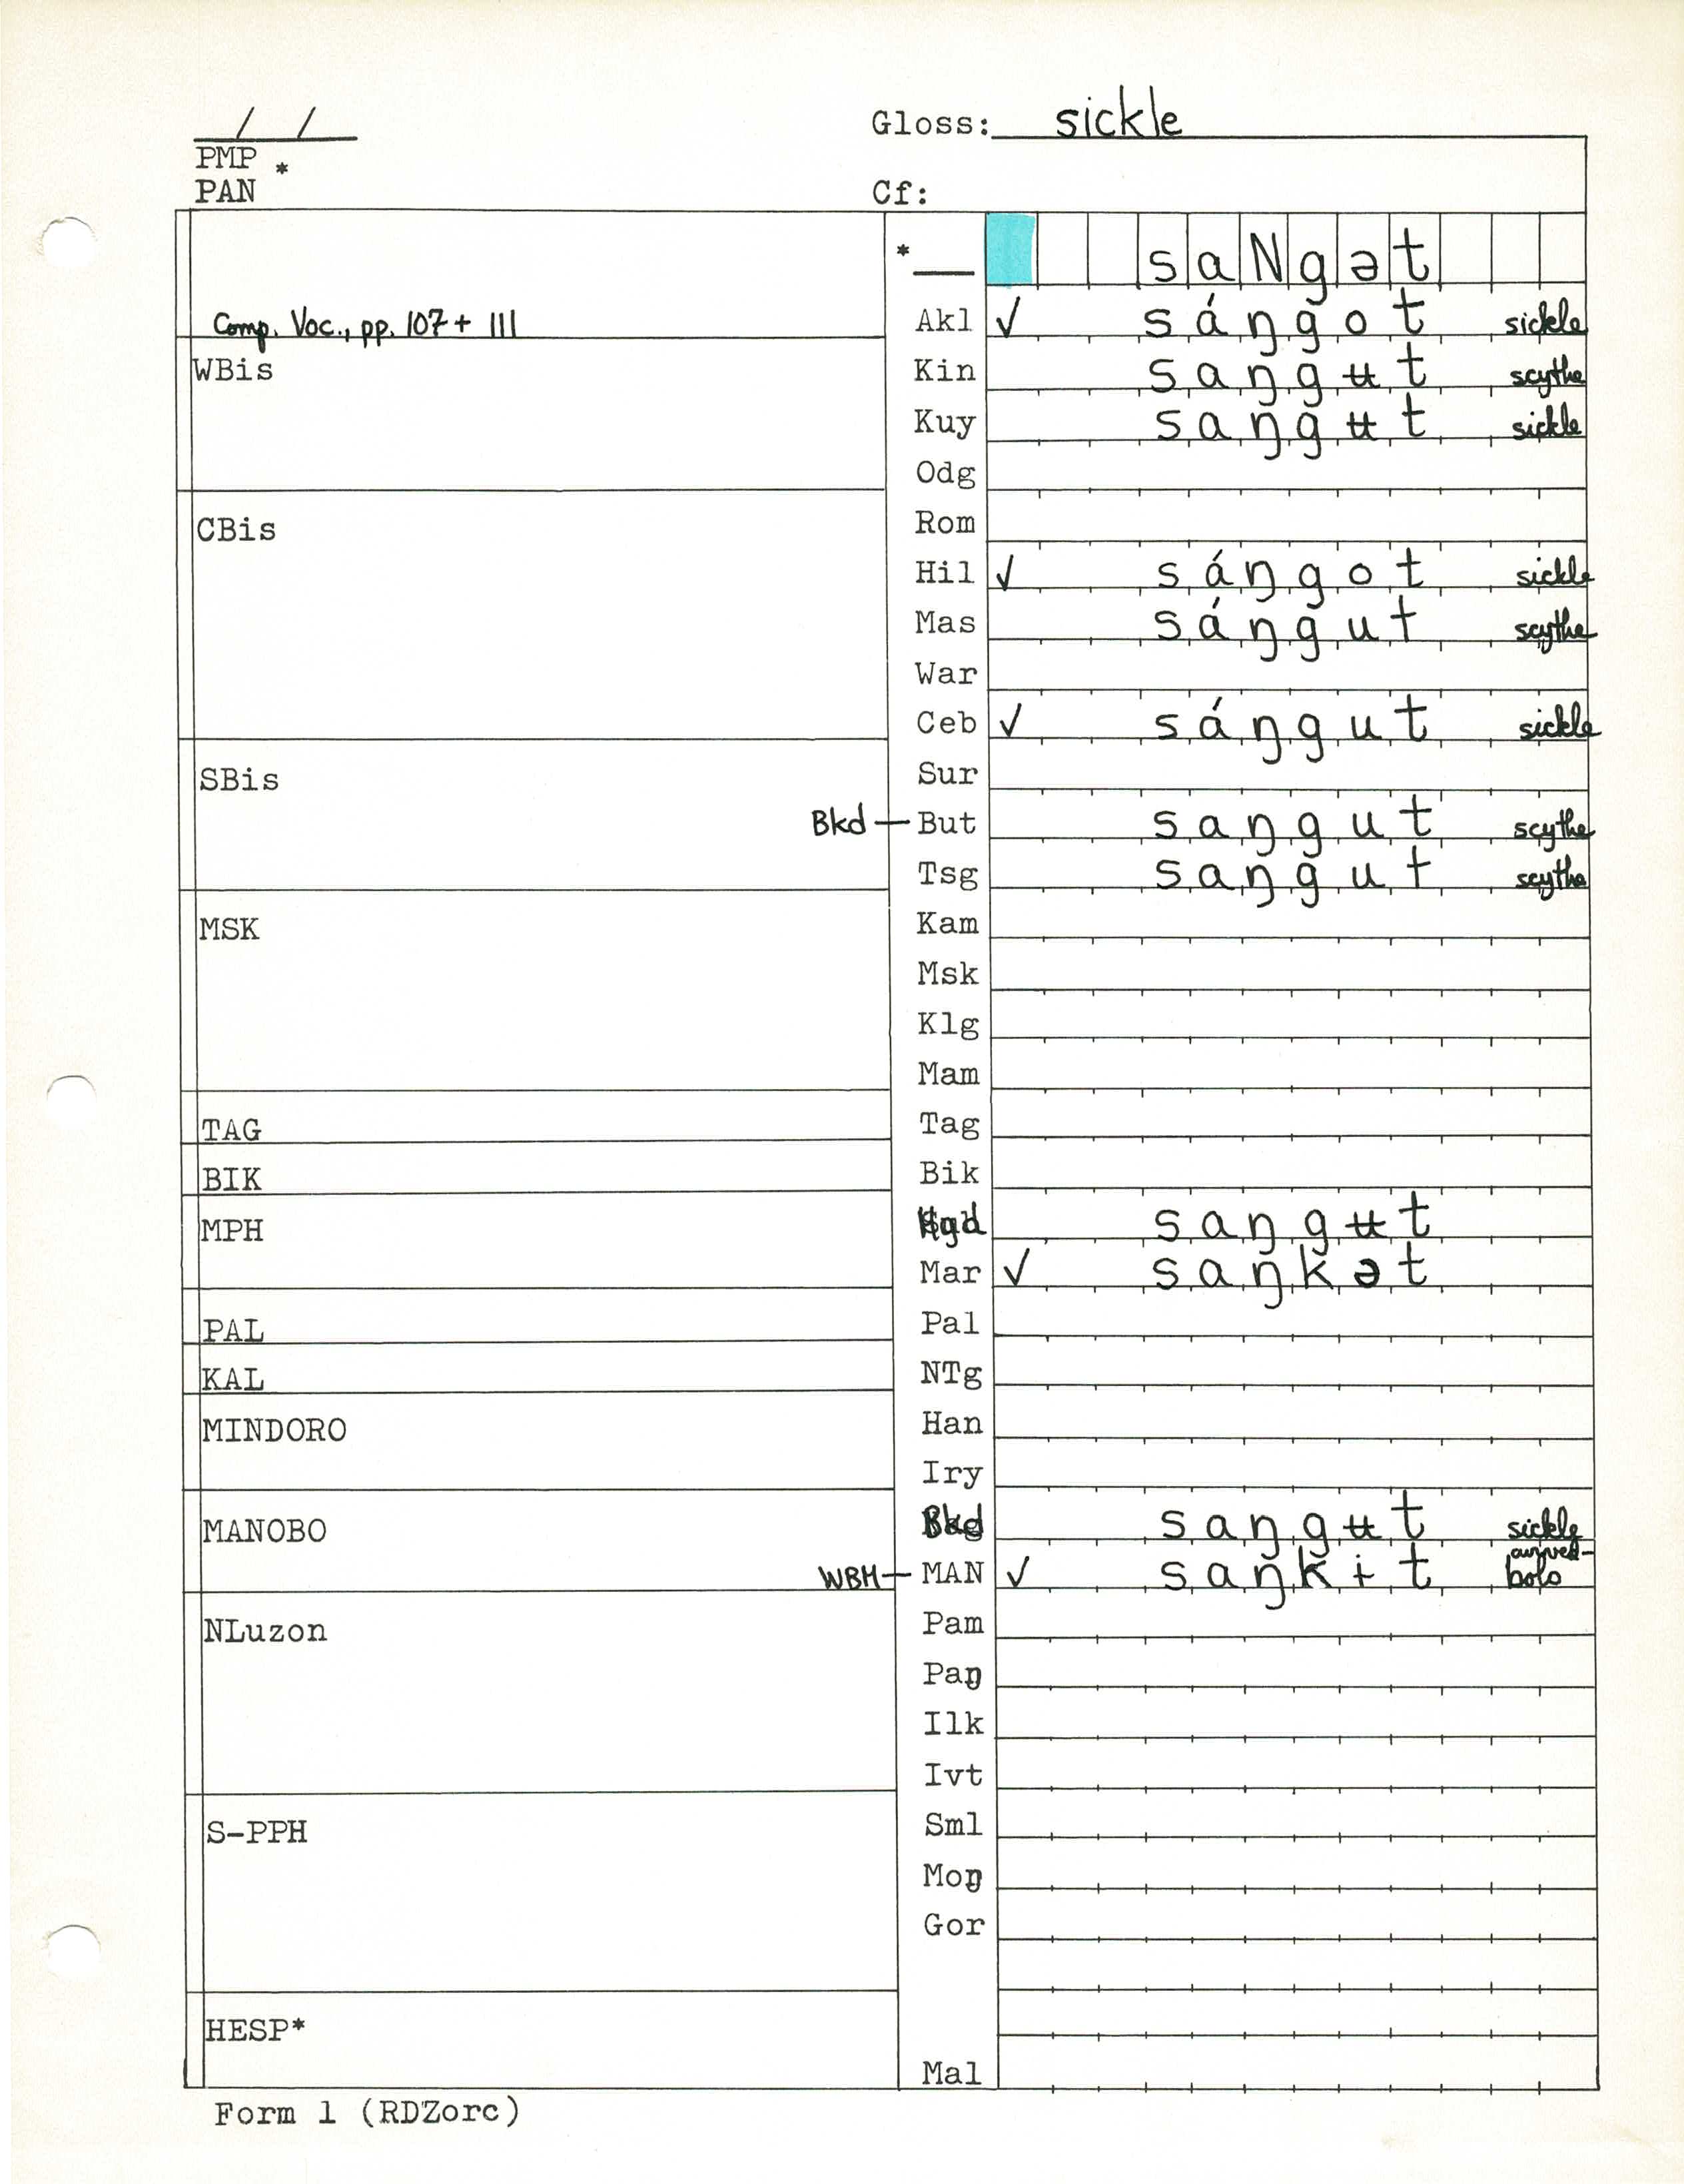 / /
Gloss: sickle
PMP *
PAN
Cf:
* saNgət
Comp. Voc., pp. 107 + 111
Akl ✓ sáŋgot sickle
WBis
Kin saŋgʉt scythe
Kuy saŋgʉt sickle
Odg
CBis
Rom
Hil ✓ sáŋgot sickle
Mas sáŋgut scythe
War
Ceb ✓ sáŋgut sickle
SBis
Sur
Bkd — But saŋgut scythe
Tsg saŋgut scythe
MSK
Kam
Msk
Klg
Mam
TAG
Tag
BIK
Bik
MPH
saŋgʉt
Mar ✓ saŋkət
PAL
Pal
KAL
NTg
MINDORO
Han
Iry
MANOBO
Bkd saŋgʉt sickle
WBM — MAN ✓ saŋkɨt bolo
NLuzon
Pam
Paŋ
Ilk
Ivt
S-PPH
Sml
Moŋ
Gor
HESP*
Mal
Form 1 (RDZorc)